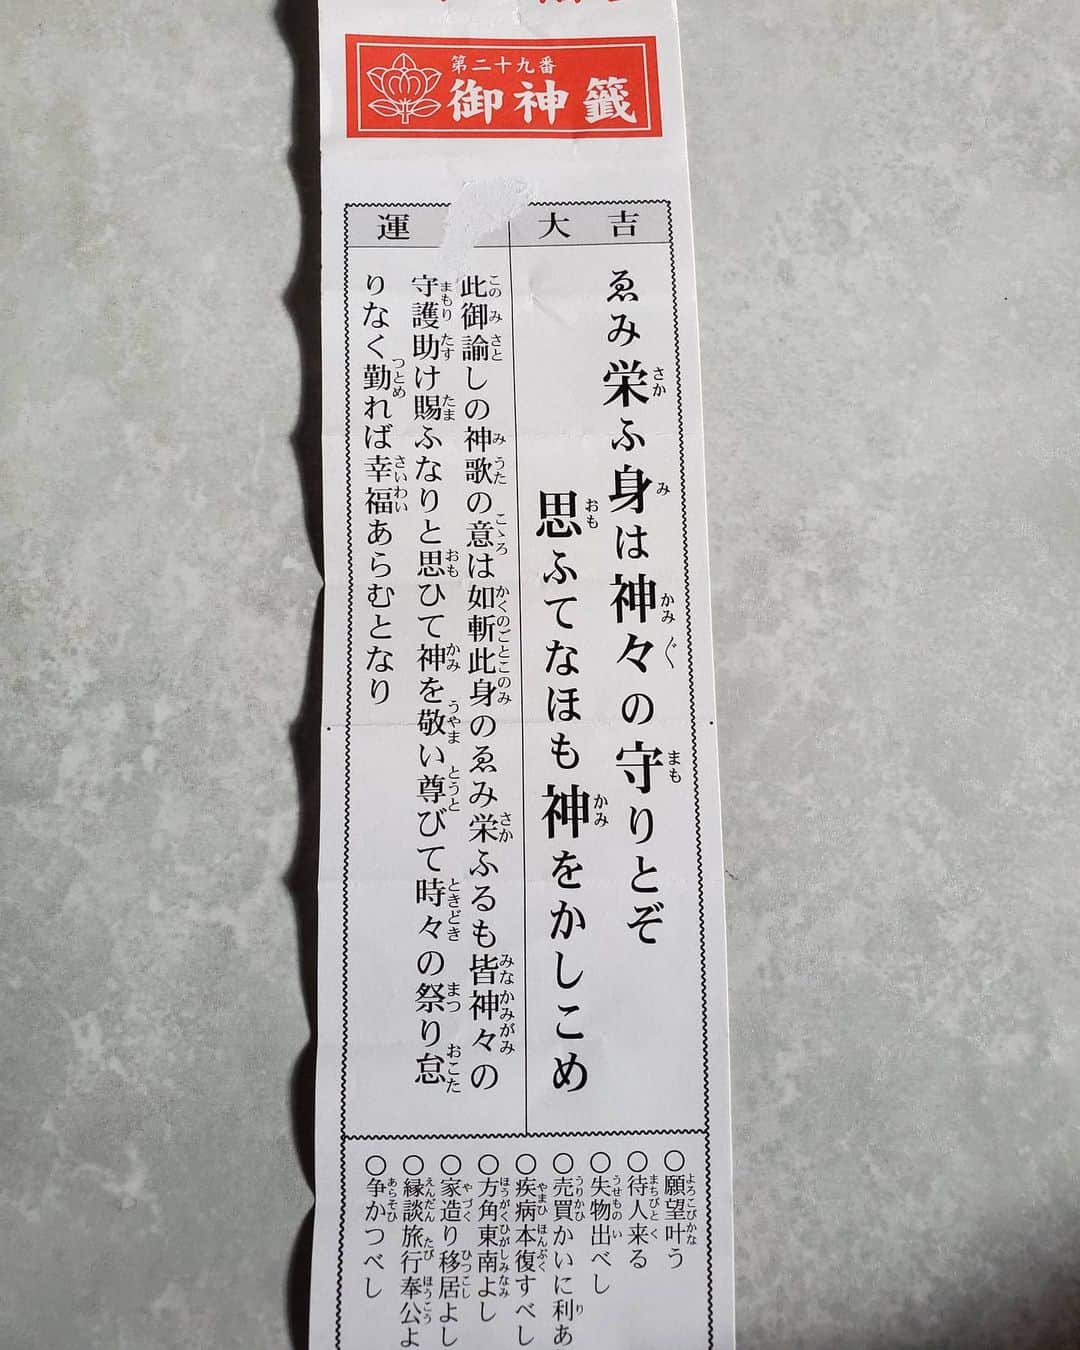 第二十九番
御神籤
大吉
ゑみ栄ふ身は神々の守りとぞ
思ふてなほも神をかしこめ
運
此御諭しの神歌の意は如斬此身のゑみ栄ふるも皆神々の
守護助け賜ふなりと思ひて神を敬い尊びて時々の祭り怠
りなく勤れば幸福あらむとなり
○願望叶う
○待人来る
○失物出べし
○売買かいに利あ
○疾病本復すべし
○方角東南よし
○家造り移居よし
○縁談旅行奉公よ
○争かつべし